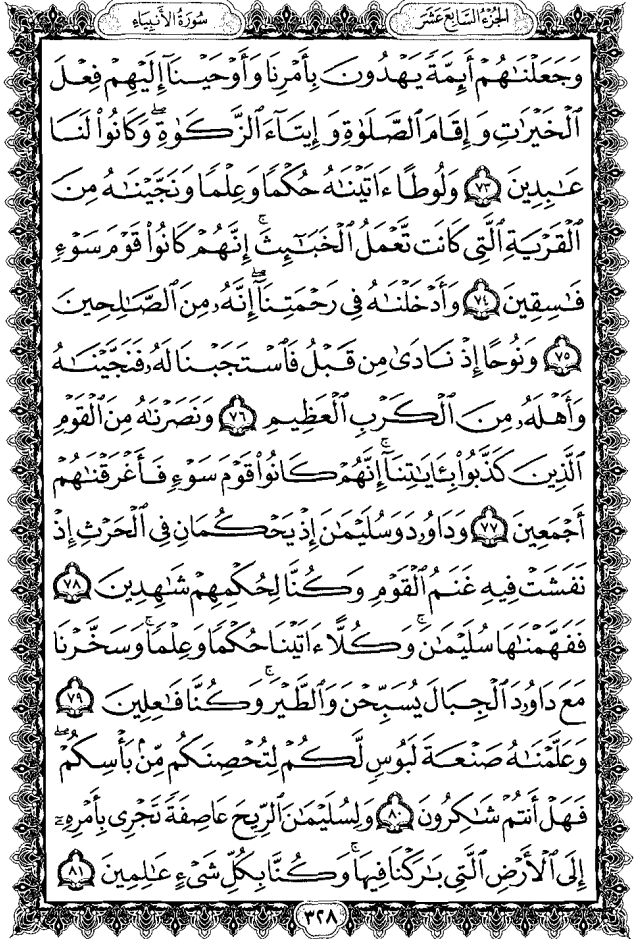 الجزء السابع عشر
سورة الأنبياء
وَجَعَلْنَٰهُمْ أَئِمَّةً يَهْدُونَ بِأَمْرِنَا وَأَوْحَيْنَآ إِلَيْهِمْ فِعْلَ
ٱلْخَيْرَٰتِ وَإِقَامَ ٱلصَّلَوٰةِ وَإِيتَآءَ ٱلزَّكَوٰةِۖ وَكَانُوا۟ لَنَا
عَٰبِدِينَ ٧٣ وَلُوطًا ءَاتَيْنَٰهُ حُكْمًا وَعِلْمًا وَنَجَّيْنَٰهُ مِنَ
ٱلْقَرْيَةِ ٱلَّتِى كَانَت تَّعْمَلُ ٱلْخَبَٰٓئِثَۚ إِنَّهُمْ كَانُوا۟ قَوْمَ سَوْءٍ
فَٰسِقِينَ ٧٤ وَأَدْخَلْنَٰهُ فِى رَحْمَتِنَآۖ إِنَّهُۥ مِنَ ٱلصَّٰلِحِينَ
٧٥ وَنُوحًا إِذْ نَادَىٰ مِن قَبْلُ فَٱسْتَجَبْنَا لَهُۥ فَنَجَّيْنَٰهُ
وَأَهْلَهُۥ مِنَ ٱلْكَرْبِ ٱلْعَظِيمِ ٧٦ وَنَصَرْنَٰهُ مِنَ ٱلْقَوْمِ
ٱلَّذِينَ كَذَّبُوا۟ بِـَٔايَٰتِنَآۚ إِنَّهُمْ كَانُوا۟ قَوْمَ سَوْءٍ فَأَغْرَقْنَٰهُمْ
أَجْمَعِينَ ٧٧ وَدَاوُۥدَ وَسُلَيْمَٰنَ إِذْ يَحْكُمَانِ فِى ٱلْحَرْثِ إِذْ
نَفَشَتْ فِيهِ غَنَمُ ٱلْقَوْمِ وَكُنَّا لِحُكْمِهِمْ شَٰهِدِينَ ٧٨
فَفَهَّمْنَٰهَا سُلَيْمَٰنَۚ وَكُلًّا ءَاتَيْنَا حُكْمًا وَعِلْمًاۚ وَسَخَّرْنَا
مَعَ دَاوُۥدَ ٱلْجِبَالَ يُسَبِّحْنَ وَٱلطَّيْرَۚ وَكُنَّا فَٰعِلِينَ ٧٩
وَعَلَّمْنَٰهُ صَنْعَةَ لَبُوسٍ لَّكُمْ لِتُحْصِنَكُم مِّنۢ بَأْسِكُمْۖ
فَهَلْ أَنتُمْ شَٰكِرُونَ ٨٠ وَلِسُلَيْمَٰنَ ٱلرِّيحَ عَاصِفَةً تَجْرِى بِأَمْرِهِۦٓ
إِلَى ٱلْأَرْضِ ٱلَّتِى بَٰرَكْنَا فِيهَاۚ وَكُنَّا بِكُلِّ شَىْءٍ عَٰلِمِينَ ٨١
٣٢٨